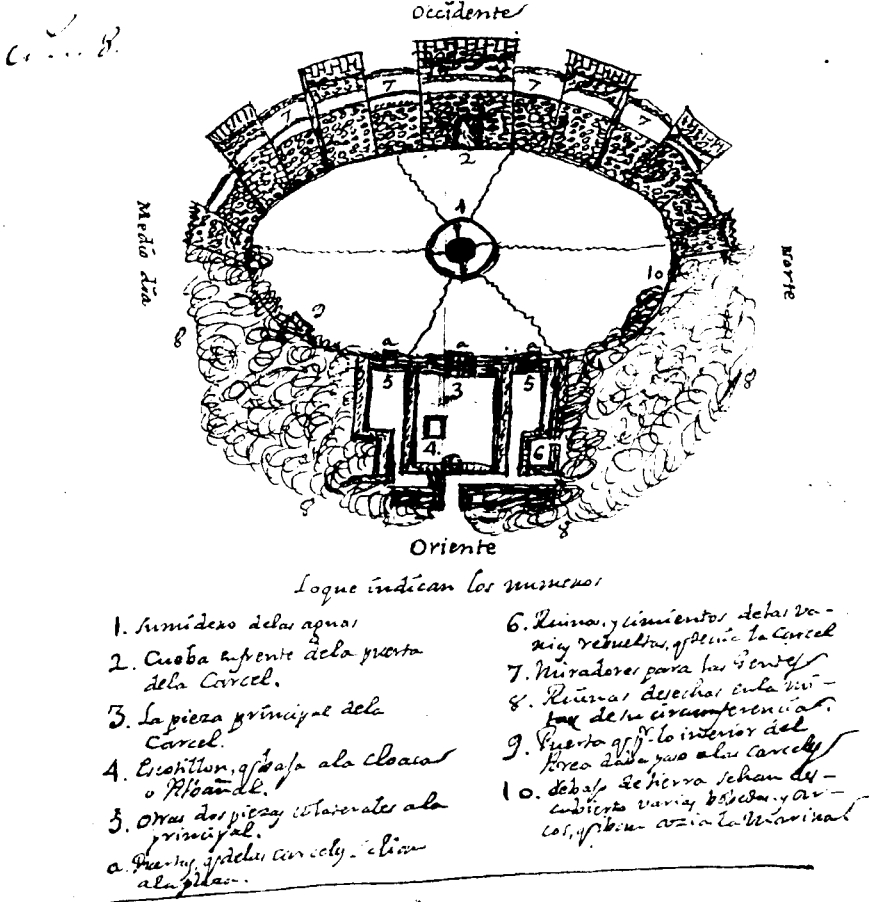 Occidente
7
7
7
7
2
1
Medio dia
Norte
10
9
8
a
a
a
5
3
5
4.
6
8
8
8
Oriente
Loque indican los numeros
1. Sumidero delas aguas
2. Cueba enfrente dela puerta
dela Carcel.
3. La pieza principal dela
Carcel.
4. Escotillon, q baja ala cloacas
o Albañal.
5. otras dos piezas colaterales ala
principal.
a. Puertas, q delas carceles
ala plaza.
6. Ruinas, y cimientos delas va-
rias revueltas, q tenia la Carcel
7. Miradores para las Gentes
8. Ruinas desechas enla mi-
tad de su circumferencia.
9. Puerta q pr. lo interior del
Area daba paso alas Carceles
10. debajo de tierra sehan des-
cubierto varias bobedas, y ar-
cos, q iban azia la Marina